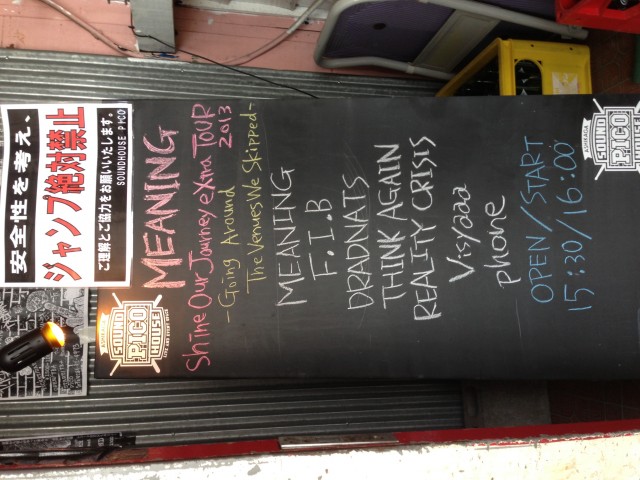 安全性を考え、
ジャンプ絶対禁止
ご理解とご協力をお願いいたします。
SOUNDHOUSE PICO
ASHIKAGA
SOUND
PICO
HOUSE
MEANING
Shine Our Journey eXtra TOUR
2013
-Going Around
The Venues We Skipped-
MEANING
F.I.B
DRADNATS
THINK AGAIN
REALITY CRISIS
Visyaaa
phone
OPEN/START
15:30/16:00
ASHIKAGA
SOUND
PICO
HOUSE